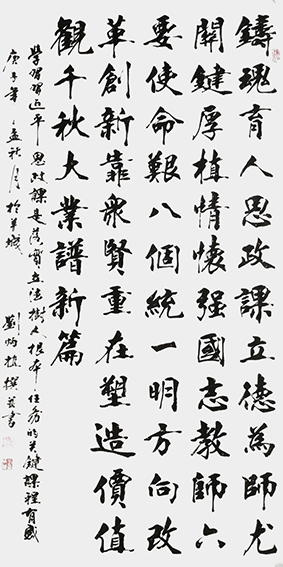 鑄魂育人思政課立德為師尤
關鍵厚植情懷强國志教師六
要使命艱八個統一明方向改
革創新靠衆賢重在塑造價值
觀千秋大業譜新篇
學習習近平思政課是落實立德樹人根本任務的关鍵課程有感
庚子年孟秋月於羊城 劉炳 撰并書